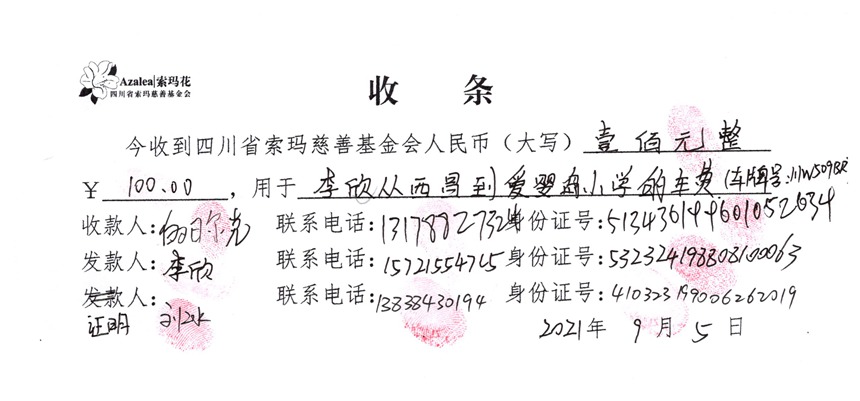 Azalea|索玛花
四川省索玛慈善基金会
收 条
今收到四川省索玛慈善基金会人民币(大写) 壹佰元整
¥ 100.00 ,用于 李欣从西昌到爱婴小学的车费(车牌号:川W509BR
收款人: 联系电话: 身份证号:513436199601052634
发款人:李欣 联系电话:15721554745 身份证号:532324198808100063
发款人: 联系电话:13838430194 身份证号:410323199006262019
证明 2021年 9月 5日